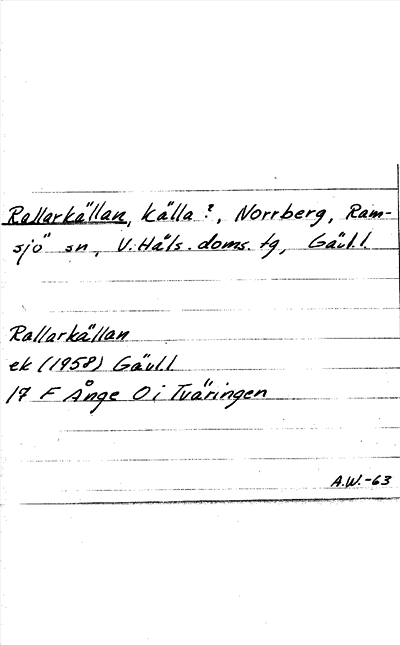 Rallarkällan, källa?, Norrberg, Ram-
sjö sn, V. Häls. doms. tg, Gävl. l.
Rallarkällan
ek (1958) Gävl. l
17 F Ånge O i Tväringen
A.W.-63